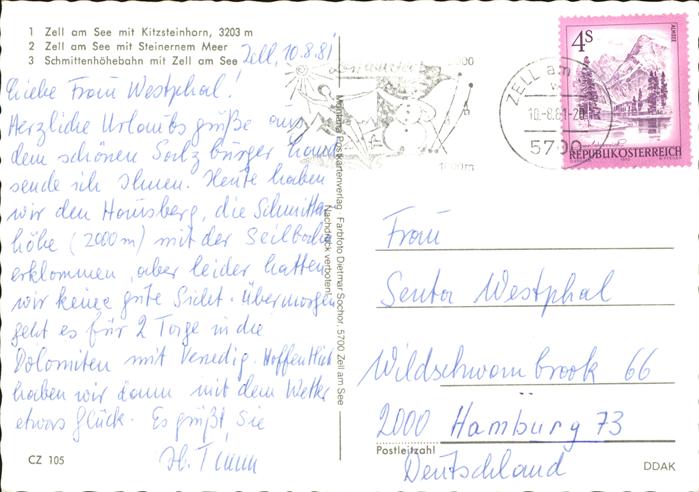 1 Zell am See mit Kitzsteinhorn, 3203 m
2 Zell am See mit Steinernem Meer
3 Schmittenhöhebahn mit Zell am See
Zell, 10.8.81
Liebe Frau Westphal!
Herzliche Urlaubsgrüße aus
dem schönen Salzburger Land
sende ich Ihnen. Heute haben
wir den Hausberg, die Schmitten
höhe (2000m) mit der Seilbahn
erklommen, aber leider hatten
wir keine gute Sicht. Übermorgen
geht es für 2 Tage in die
Dolomiten mit Venedig. Hoffentlich
haben wir dann mit dem Wetter
etwas Glück. Es grüßt Sie
CZ 105
Postkartenverlag · Farbfoto Dietmar Sochor, 5700 Zell am See
Nachdruck verboten!
ZELL am
10.-8.81-20
5700
4S
ALMSEE
REPUBLIK ÖSTERREICH
Frau
Senta Westphal
Wildschwanbrook 66
2000 Hamburg 73
Postleitzahl
Deutschland
DDAK